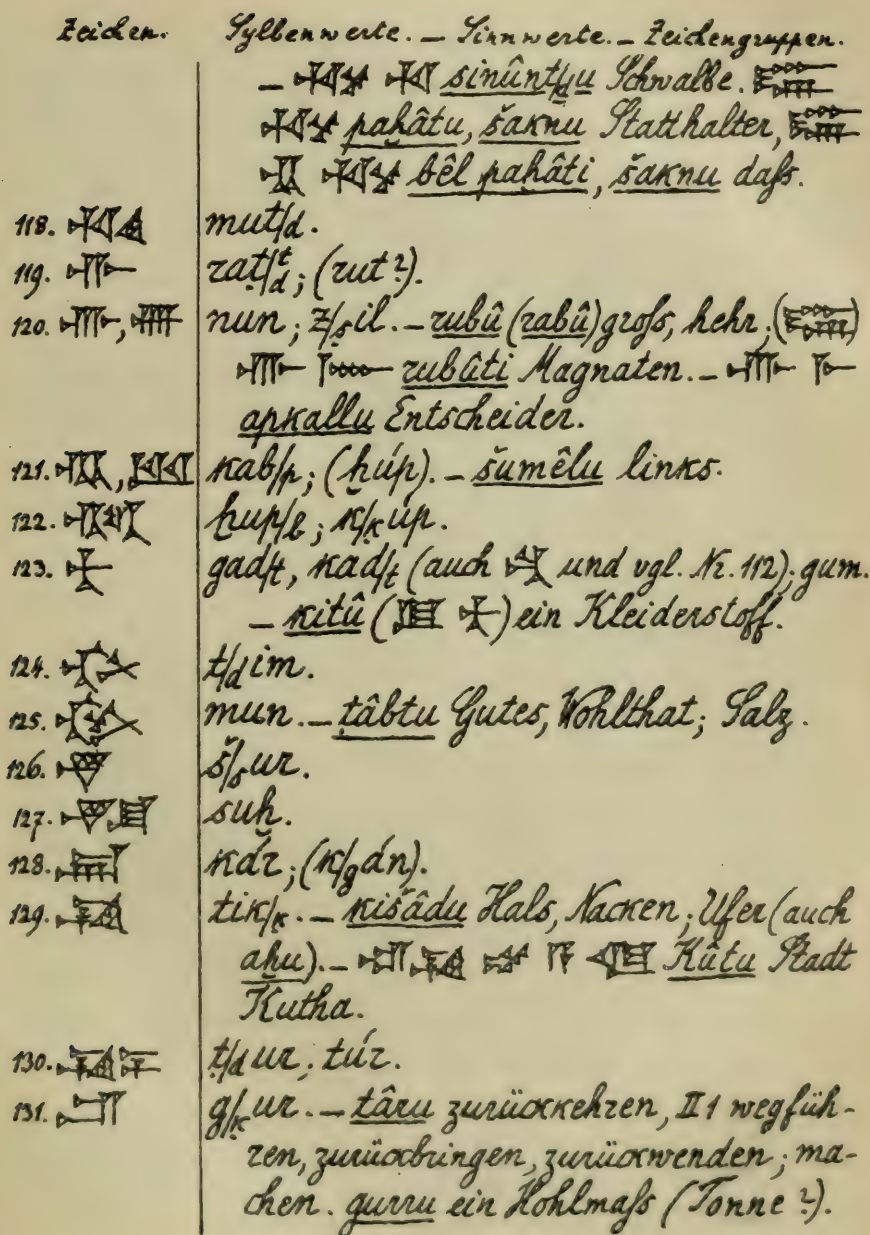 Zeichen. Sylbenwerte. – Sinnwerte. – Zeichengruppen.
– sinûnt/du Schwalbe.
paḫâtu, šaknu Statthalter,
bêl paḫâti, šaknu dass.
118. mut/d.
119. rat/ṭ/d; (rut?).
120. , nun; z/ṣil. – rubû (rabû) gross, hehr; ( )
rubûti Magnaten. –
apkallu Entscheider.
121. , kab/p; (ḫúp). – šumêlu links.
122. ḫup/b; k/ḳúp.
123. gad/t, kad/t (auch und vgl. Nr. 112); gum.
– kitû ( ) ein Kleiderstoff.
124. t/dim.
125. mun. – ṭâbtu Gutes, Wohlthat; Salz.
126. š/sur.
127. suḫ.
128. kár; (k/gán).
129. tik/ḳ. – kišâdu Hals, Nacken; Ufer (auch
aḫu). – Kûtu Stadt
Kutha.
130. ṭ/dur; túr.
131. g/ḳur. – târu zurückkehren, II 1 wegfüh-
ren, zurückbringen, zurückwenden; ma-
chen. gurru ein Hohlmass (Tonne?).